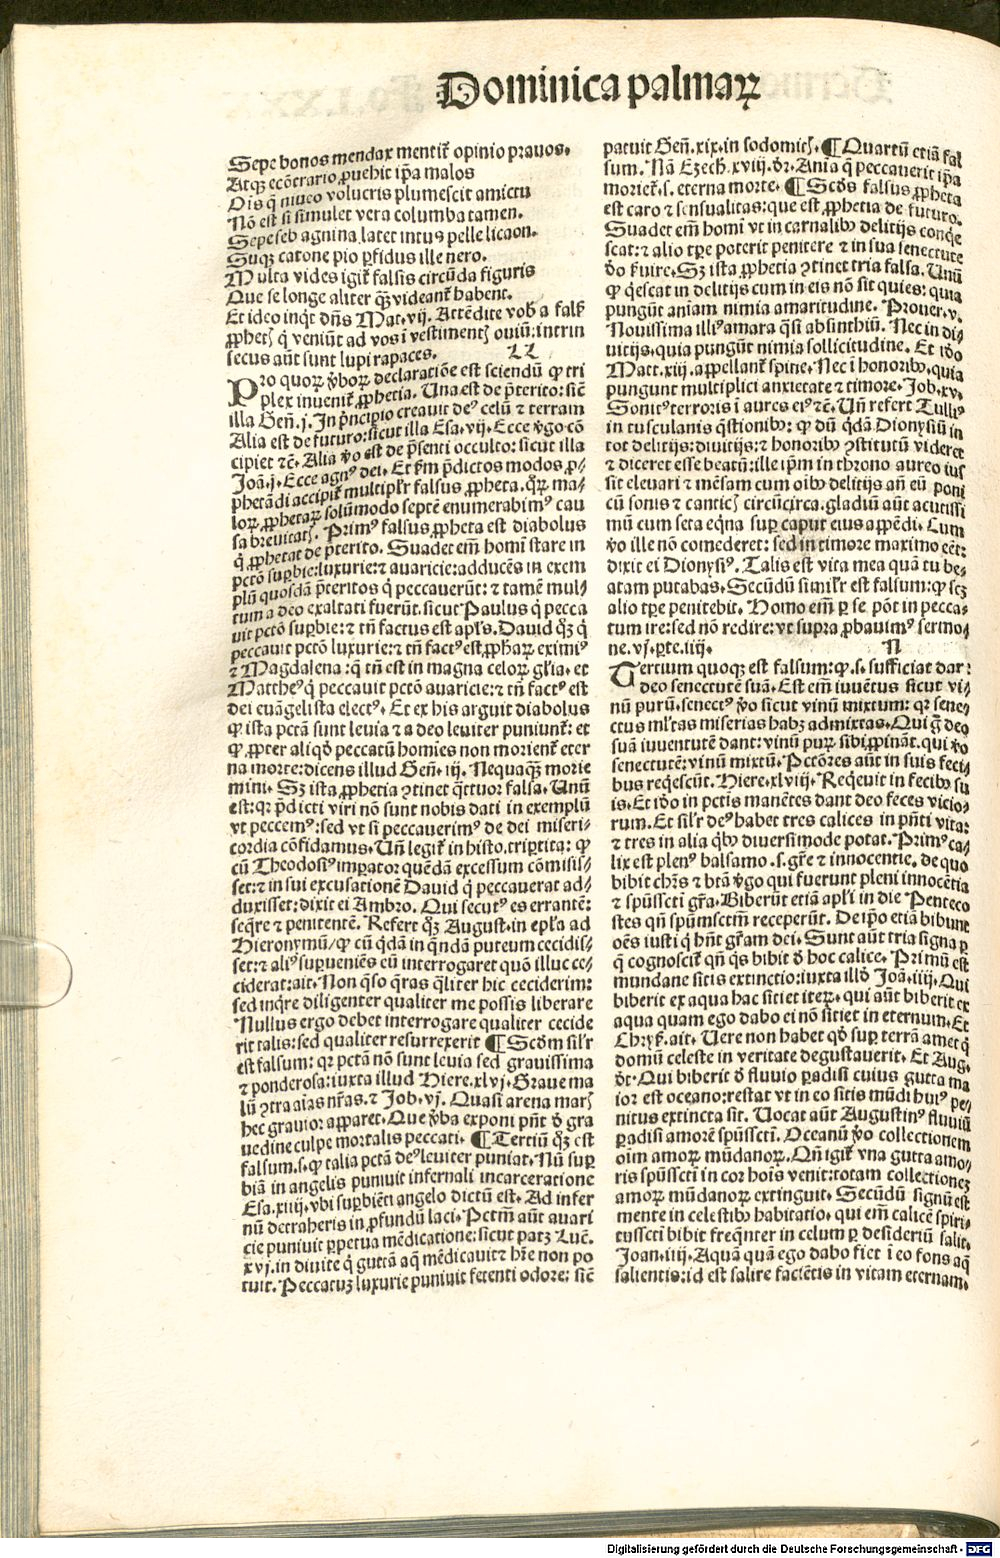 Dominica palmaꝝ
Sepe bonos mendax mentit᷑ opinio prauos.
Atqꝫ ecōtrario ꝓuehit ip̄a malos
Dis q̄ niueo volucris plumescit amictu
Nō est si simulet vera columba tamen.
Sepe seb agnina latet intus pelle licaon.
Suqꝫ catone pio ꝑfidus ille nero.
Multa vides igit᷑ falsis circūda figuris
Que se longe aliter qꝫ̄ videant᷑ habent.
Et ideo inq̇t dn̄s Mat. vij. Attēdite vob̄ a fals̄
ꝓphet̄ q̇ veniūt ad vos ī vestimentꝭ ouiū: intrin
secus aūt sunt lupi rapaces. LL
PRo quoꝝ v̄boꝝ declaratiōe est sciendū ꝙ tri
plex inuenit᷑ ꝓphetia. Una est de p̄terito: sicē
illa Gen̄. j. In p̄ncipio creauit deꝰ celū ⁊ terram
Alia est de futuro: sicut illa Esa. vij. Ecce v̄go cō
cipiet ⁊c̄. Alia v̄o est de p̄senti occulto: sicut illa
Joā. j. Ecce agnꝰ dei. Et s̄m p̄dictos modos ꝓ⸗
phetādi accipit᷑ multiplr̄ falsus ꝓpheta. q̄ꝝ ma⸗
loꝝ ꝓphetaꝝ solūmodo septē enumerabimꝰ cau
sa breuitatꝭ. Primꝰ falsus ꝓpheta est diabolus
q̇ ꝓphetat de p̄terito. Suadet em̄ homī stare in
pctō suꝑbie: luxurie: ⁊ auaricie: adducēs in exem
plū quosdā p̄teritos q̇ peccauerūt: ⁊ tamē mul⸗
tum a deo exaltati fuerūt. sicut Paulus q̇ pecca
uit pctō suꝑbie: ⁊ tn̄ factus est apl̄s. Dauid qꝫ̄ q̇
peccauit pctō luxurie: ⁊ tn̄ factꝰ est ꝓph̄aꝝ eximiꝰ
⁊ Magdalena: q̄ tn̄ est in magna celoꝝ gl̄ia. et
Mattheꝰ q̇ peccauit pctō auaricie: ⁊ tn̄ factꝰ est
dei euāgelista electꝰ. Et ex his arguit diabolus
ꝙ ista pctā sunt leuia ⁊ a deo leuiter puniunt᷑: et
ꝙ ꝓpter aliqd̄ peccatū homīes non morient᷑ eter
na morte: dicens illud Gen̄. iij. Nequaqꝫ̄ morie
mini. Sꝫ ista ꝓphetia ꝯtinet q̄ttuor falsa. Unū
est: qꝛ p̄dicti viri nō sunt nobis dati in exemplū
vt peccemꝰ: sed vt si peccauerimꝰ de dei miseri⸗
cordia cōfidamus. Un̄ legit᷑ in histo. triꝑtita: ꝙ
cū Theodosiꝰ imꝑator quēdā excessum cōmisis⸗
set: ⁊ in sui excusationē Dauid q̇ peccauerat ad⸗
duxisset: dixit ei Ambro. Qui secutꝰ es errantē:
seq̄re ⁊ penitentē. Refert qꝫ̄ August. in epl̄a ad
Hieronymū/ ꝙ cū q̇dā in q̄ndā puteum cecidis⸗
set: ⁊ aliꝰ suꝑueniēs eū interrogaret quō illuc ce⸗
ciderat: ait. Non q̄so q̄ras q̄liter hic ceciderim:
sed inq̇re diligenter qualiter me possis liberare
Nullus ergo debet interrogare qualiter cecide
rit talis: sed qualiter resurrexerit ¶ Scd̄m sil̄r
est falsum: qꝛ pctā nō sunt leuia sed grauissima
⁊ ponderosa: iuxta illud Hiere. xlvj. Graue ma
lū ꝯtra aīas nr̄as. ⁊ Job. vj. Quasi arena marꝭ
hec grauior apparet. Que v̄ba exponi pn̄t d̄ gra
uedine culpe mortalis peccati. ¶ Tertiū qꝫ̄ est
falsum. s. ꝙ talia pctā deꝰ leuiter puniat. Nā suꝑ
biā in angelis puniuit infernali incarceratione
Esa. xiiij. vbi suꝑbiēti angelo dictū est. Ad infer
nū detraheris in ꝓfundū laci. Pctm̄ aūt auari
cie puniuit ꝑpetua mēdicatione: sicut patꝫ Luc̄.
xvj. in diuite q̇ guttā aq̄ mēdicauit ⁊ hr̄e non po
tuit. Peccatuꝫ luxurie puniuit fetenti odore: sicē
patuit Gen̄. xix. in sodomitꝭ. ¶ Quartū etiā fal
sum. Nā Ezech. xviij. dr̄. Anīa q̄ peccauerit ip̄a
moriet᷑. s. eterna morte. ¶ Scd̄s falsus ꝓpheta
est caro ⁊ sensualitas: que est ꝓphetia de futuro.
Suadet em̄ homī vt in carnalibꝰ delitijs conq̄e
scat: ⁊ alio tꝑe poterit penitere ⁊ in sua senectute
d̄o ẜuire. Sꝫ ista ꝓphetia ꝯtinet tria falsa. Unū
ꝙ q̇escat in delitijs cum in eis nō sit quies: quia
pungūt aīam nimia amaritudine. Prouer. v.
Nouissima illiꝰ amara q̄si absinthiū. Nec in di⸗
uitijs. quia pungūt nimia sollicitudine. Et iō
Matt. xiij. appellant᷑ spine. Nec ī honoribꝰ. quia
pungunt multiplici anxietate ⁊ timore. Job. xv.
Sonitꝰ terroris ī aures eiꝰ ⁊c̄. Un̄ refert Tulliꝰ
in tusculanis q̄stionibꝰ: ꝙ dū q̇dā Dionysiū in
tot delitijs: diuitijs: ⁊ honoribꝰ ꝯstitutū videret
⁊ diceret esse beatū: ille ip̄m in throno aureo ius
sit eleuari ⁊ mēsam cum oībꝰ delitijs an̄ eū poni
cū sonis ⁊ canticꝭ circūcirca. gladiū aūt acutissi
mū cum seta eq̇na suꝑ caput eius appēdi. Cum
v̄o ille nō comederet: sed in timore maximo eēt:
dixit ei Dionysiꝰ. Talis est vita mea quā tu be⸗
atam putabas. Secūdū simil̄r est falsum: ꝙ scꝫ
alio tꝑe penitebit. Homo em̄ ꝑ se pōt in pecca⸗
tum ire: sed nō redire: vt supra ꝓbauimꝰ sermo⸗
ne. vj. ꝑte. iiij. N
TErtium quoqꝫ est falsum: ꝙ. s. sufficiat dar:
deo senectutē suā. Est em̄ iuuētus sicut vi⸗
nū purū. senectꝰ v̄o sicut vinū mixtum: qꝛ sene⸗
ctus ml̄tas miserias habꝫ admixtas. Qui g̊ deo
suā iuuentutē dant: vinū puꝝ sibi ꝓpināt. qui v̄o
senectutē: vinū mixtū. Pctōres aūt in suis feci⸗
bus reqescūt. Hiere. xlviij. Reqeuit in fecibꝰ su
is. Et iō in pctis manētes dant deo feces vicio⸗
rum. Et sil̄r deꝰ habet tres calices in pn̄ti vita:
⁊ tres in alia q̇bꝰ diuersimode potat. Primꝰ ca⸗
lix est plenꝰ balsamo. s. gr̄e ⁊ innocentie. de quo
bibit chr̄s ⁊ btā v̄go qui fuerunt pleni innocētia
⁊ spūsscti gr̄a. Biberūt etiā apl̄i in die Penteco
stes qn̄ spūmsctm̄ receperūt. De ip̄o etiā bibunt
oēs iusti q̇ hn̄t gr̄am dei. Sunt aūt tria signa ꝑ
q̄ cognoscit᷑ qn̄ q̇s bibit d̄ hoc calice. Primū est
mundane sitis extinctio: iuxta illd̄ Joā. iiij. Qui
biberit ex aqua hac sitiet iteꝝ. qui aūt biberit ex
aqua quam ego dabo ei nō sitiet in eternum. Et
Chryſ. ait. Uere non habet qd̄ suꝑ terrā amet q̇
domū celeste in veritate degustauerit. Et Aug.
dr̄. Qui biberit d̄ fluuio ꝑadisi cuius gutta ma
ior est oceano: restat vt in eo sitis mūdi huiꝰ pe⸗
nitus extincta sit. Uocat aūt Augustinꝰ fluuiū
ꝑadisi amorē spūsscti. Oceanū v̄o collectionem
oīm amoꝝ mūdanoꝝ. Qn̄ igit᷑ vna gutta amo⸗
ris spūsscti in cor hoīs venit: totam collectioneꝫ
amoꝝ mūdanoꝝ extinguit. Secūdū signū est
mente in celestibꝰ habitatio. qui em̄ calicē spiri⸗
tusscti bibit freq̄nter in celum ꝑ desideriū salit.
Joan. iiij. Aquā quā ego dabo fiet ī eo fons aq̄
salientis: id est salire faciētis in vitam eternam.
Digitalisierung gefördert durch die Deutsche Forschungsgemeinschaft - DFG